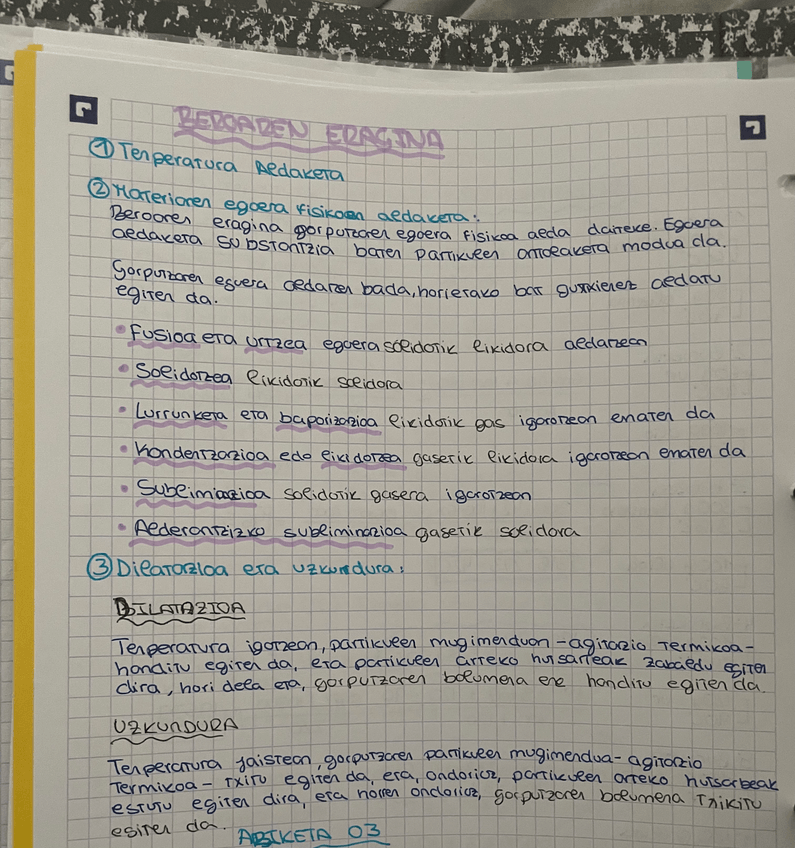 BEROAREN ERAGINA
① Tenperatura aldaketa
② Materiaren egoera fisikoan aldaketa:
Beroaren eragina gorputzaren egoera fisikoa alda daiteke. Egoera
aldaketa substantzia baten partikulen antolaketa modua da.
Gorputzaren egoera aldatzen bada, horietako bat gutxienez aldatu
egiten da.
• Fusioa eta urtzea egoera solidotik likidora aldatzean
• Solidotzea likidotik solidora
• Lurrunketa eta baporizazioa likidotik gas igarotzean ematen da
• Kondentzazioa edo likidotzea gasetik likidora igarotzean ematen da
• Sublimiazioa solidotik gasera igarotzean
• Alderantzizko subliminazioa gasetik solidora
③ Dilatazioa eta uzkundura:
DILATAZIOA
Tenperatura igotzean, partikulen mugimenduan - agitazio termikoa -
handitu egiten da, eta partikulen arteko hutsarteak zabaldu egiten
dira, hori dela eta, gorputzaren bolumena ere handitu egiten da.
UZKUNDURA
Tenperatura jaistean, gorputzaren partikulen mugimendua - agitazio
termikoa - txitu egiten da, eta, ondorioz, partikulen arteko hutsarteak
estutu egiten dira, eta horren ondorioz, gorputzaren bolumena txikitu
egiten da.
ARIKETA 03